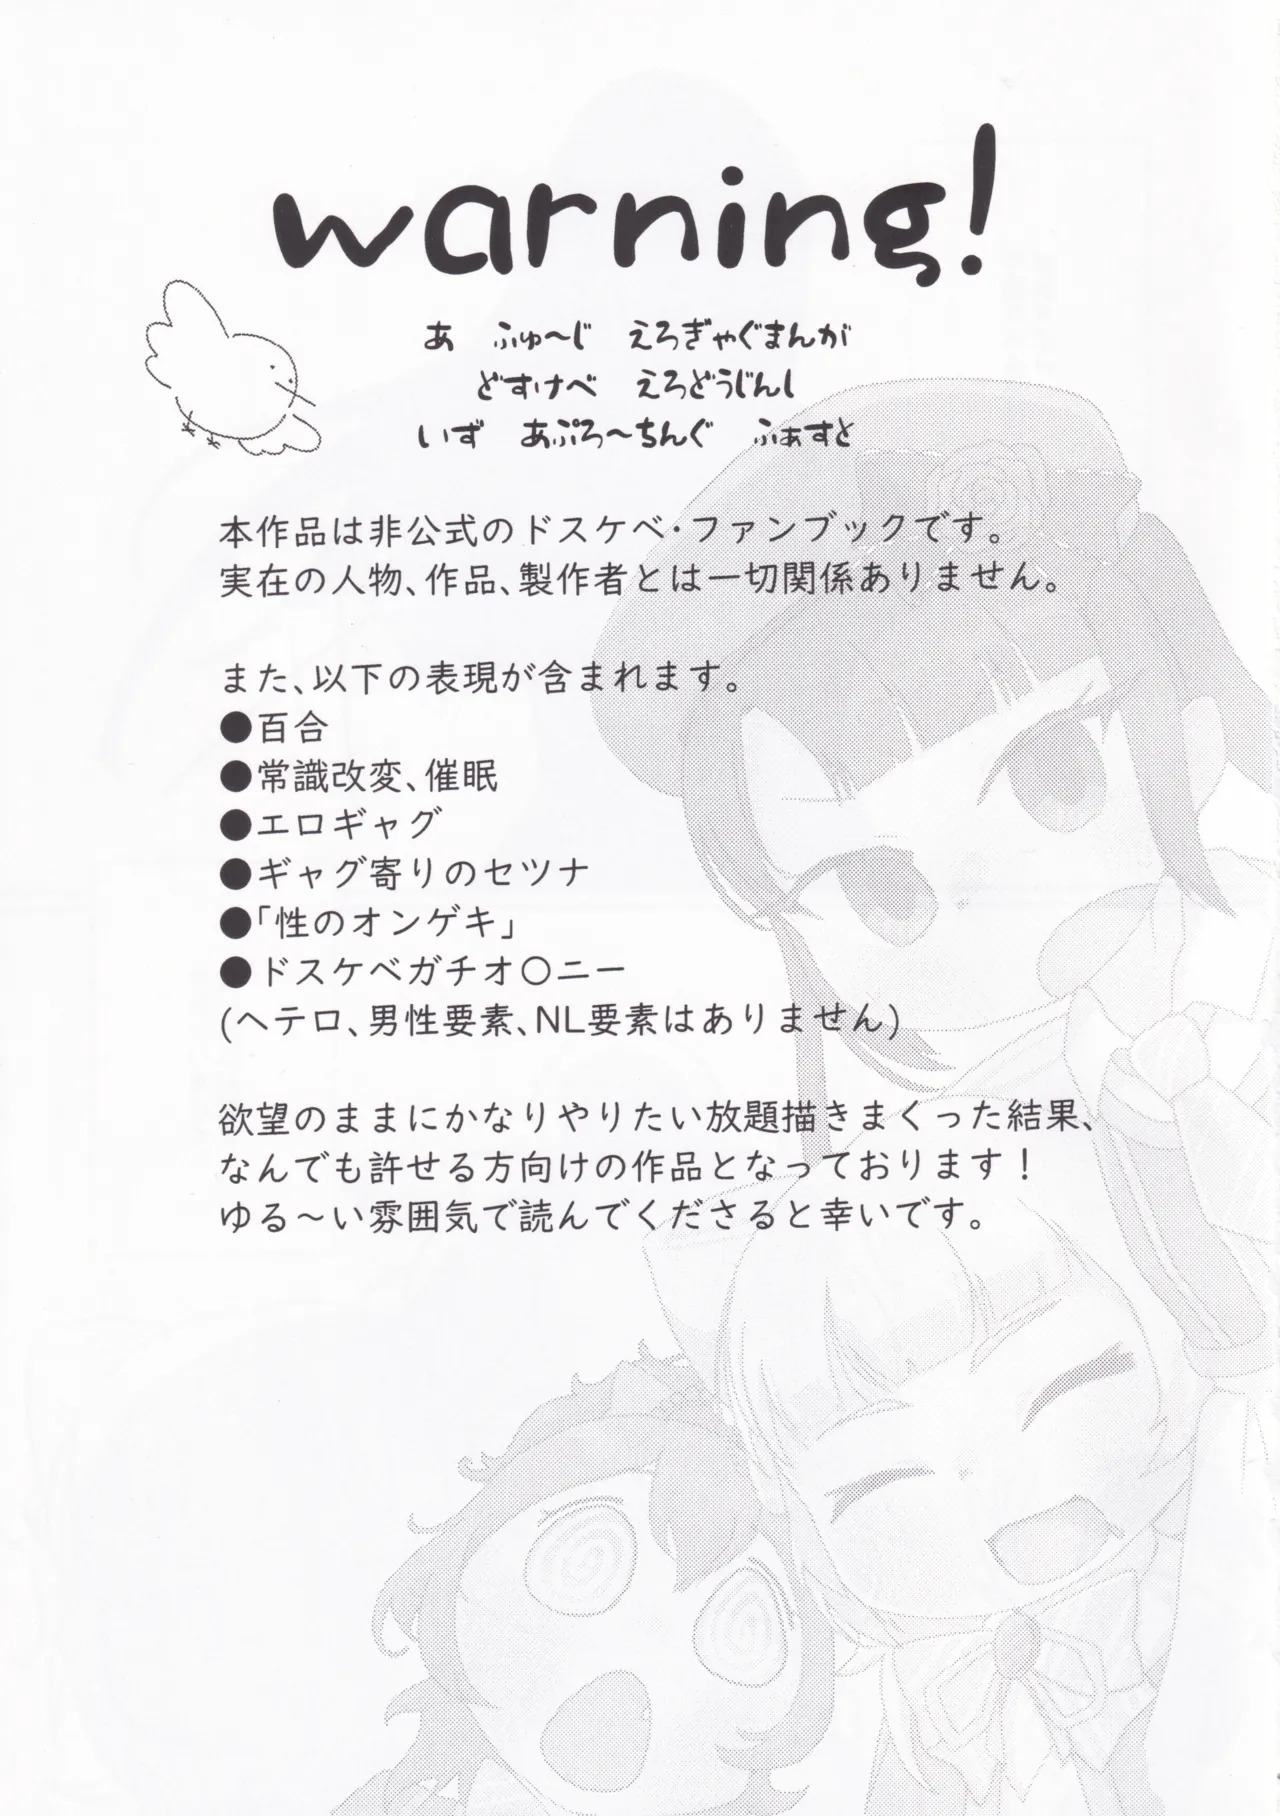 warning!
あ ふゅ～じ えろぎゃぐまんが
どすけべ えろどうじんし
いず あぷろ～ちんぐ ふぁすと
本作品は非公式のドスケベ・ファンブックです。
実在の人物、作品、製作者とは一切関係ありません。
また、以下の表現が含まれます。
●百合
●常識改変、催眠
●エロギャグ
●ギャグ寄りのセツナ
●「性のオンゲキ」
●ドスケベガチオ〇ニー
(ヘテロ、男性要素、NL要素はありません)
欲望のままにかなりやりたい放題描きまくった結果、
なんでも許せる方向けの作品となっております！
ゆる～い雰囲気で読んでくださると幸いです。